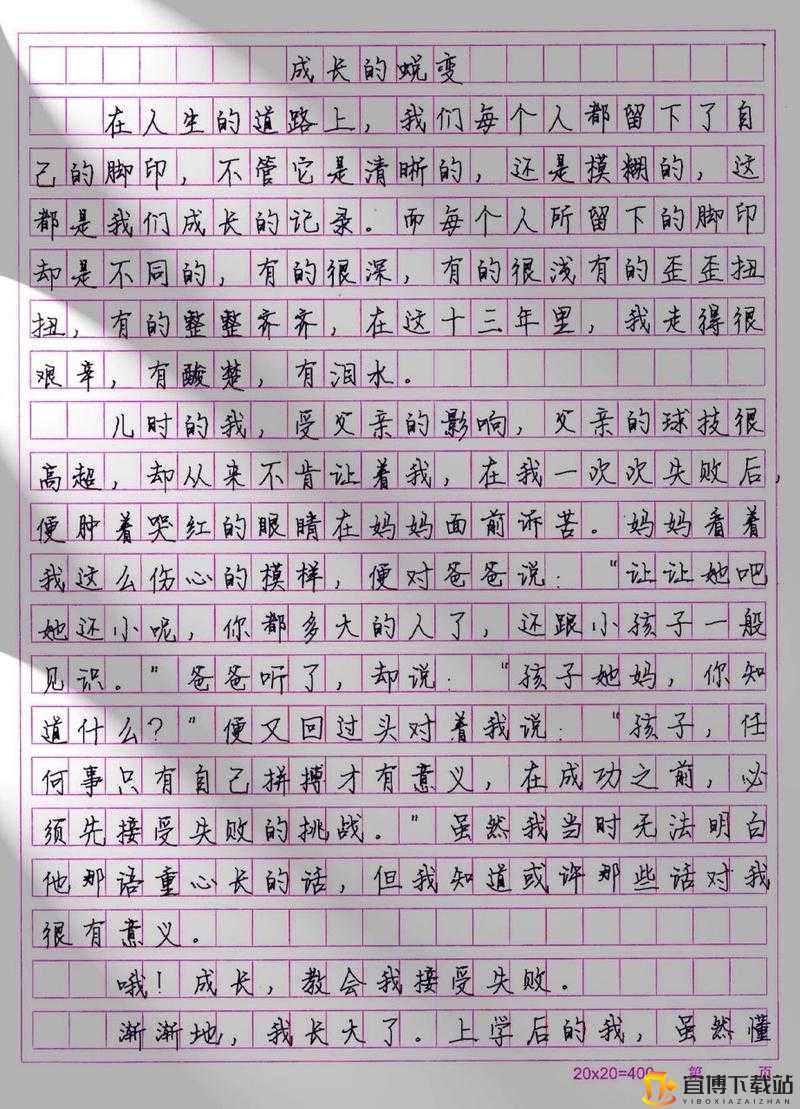 成长的蜕变
在人生的道路上，我们每个人都留下了自
己的脚印，不管它是清晰的，还是模糊的，这
都是我们成长的记录。而每个人所留下的脚印
却是不同的，有的很深，有的很浅有的歪歪扭
扭，有的整整齐齐，在这十三年里，我走得很
艰辛，有酸楚，有泪水。
儿时的我，受父亲的影响，父亲的球技很
高超，却从来不肯让着我，在我一次次失败后，
便肿着哭红的眼睛在妈妈面前诉苦。妈妈看着
我这么伤心的模样，便对爸爸说："让让她吧
她还小呢，你都多大的人了，还跟小孩子一般
见识。"爸爸听了，却说："孩子她妈，你知
道什么？"便又回过头对着我说："孩子，任
何事只有自己拼搏才有意义，在成功之前，必
须先接受失败的挑战。"虽然我当时无法明白
他那语重心长的话，但我知道或许那些话对我
很有意义。
哦！成长，教会我接受失败。
渐渐地，我长大了。上学后的我，虽然懂
20x20=400 第 页
宜博下载站
YIBOXIAZAIZHAN